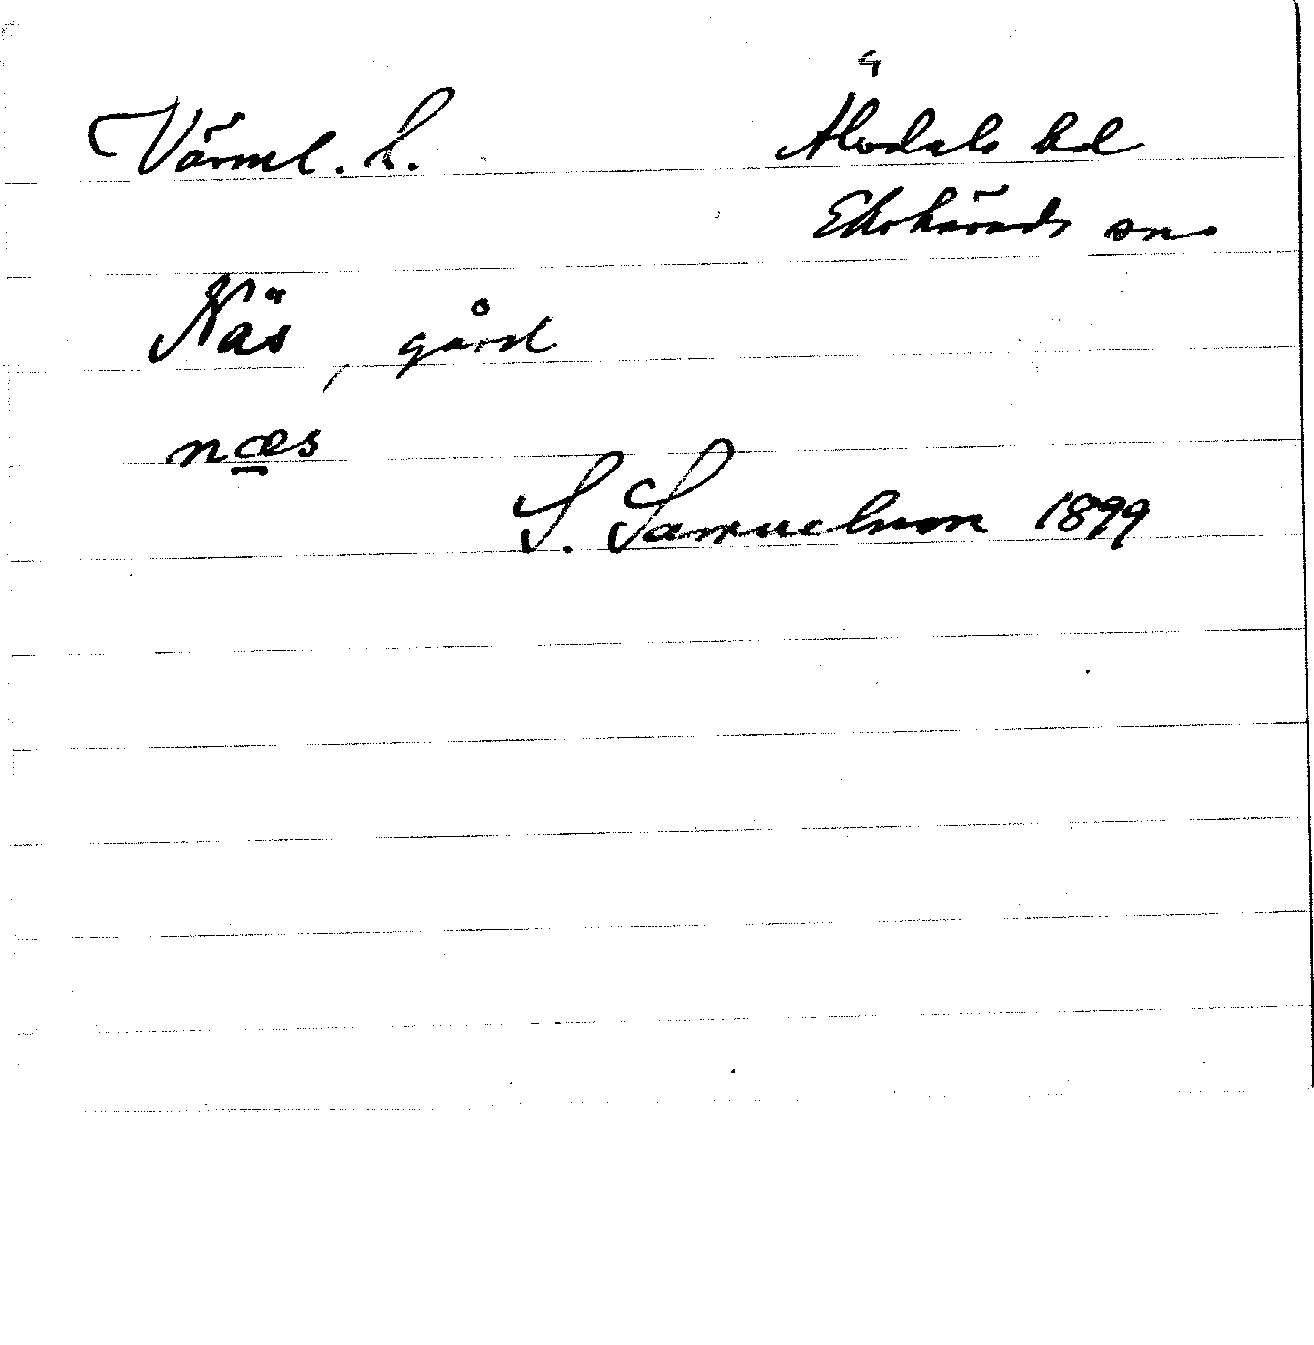 Värml. L. Älvdals hd
Ekshärads sn
Näs, gård
næs
S. Samuelsson 1899